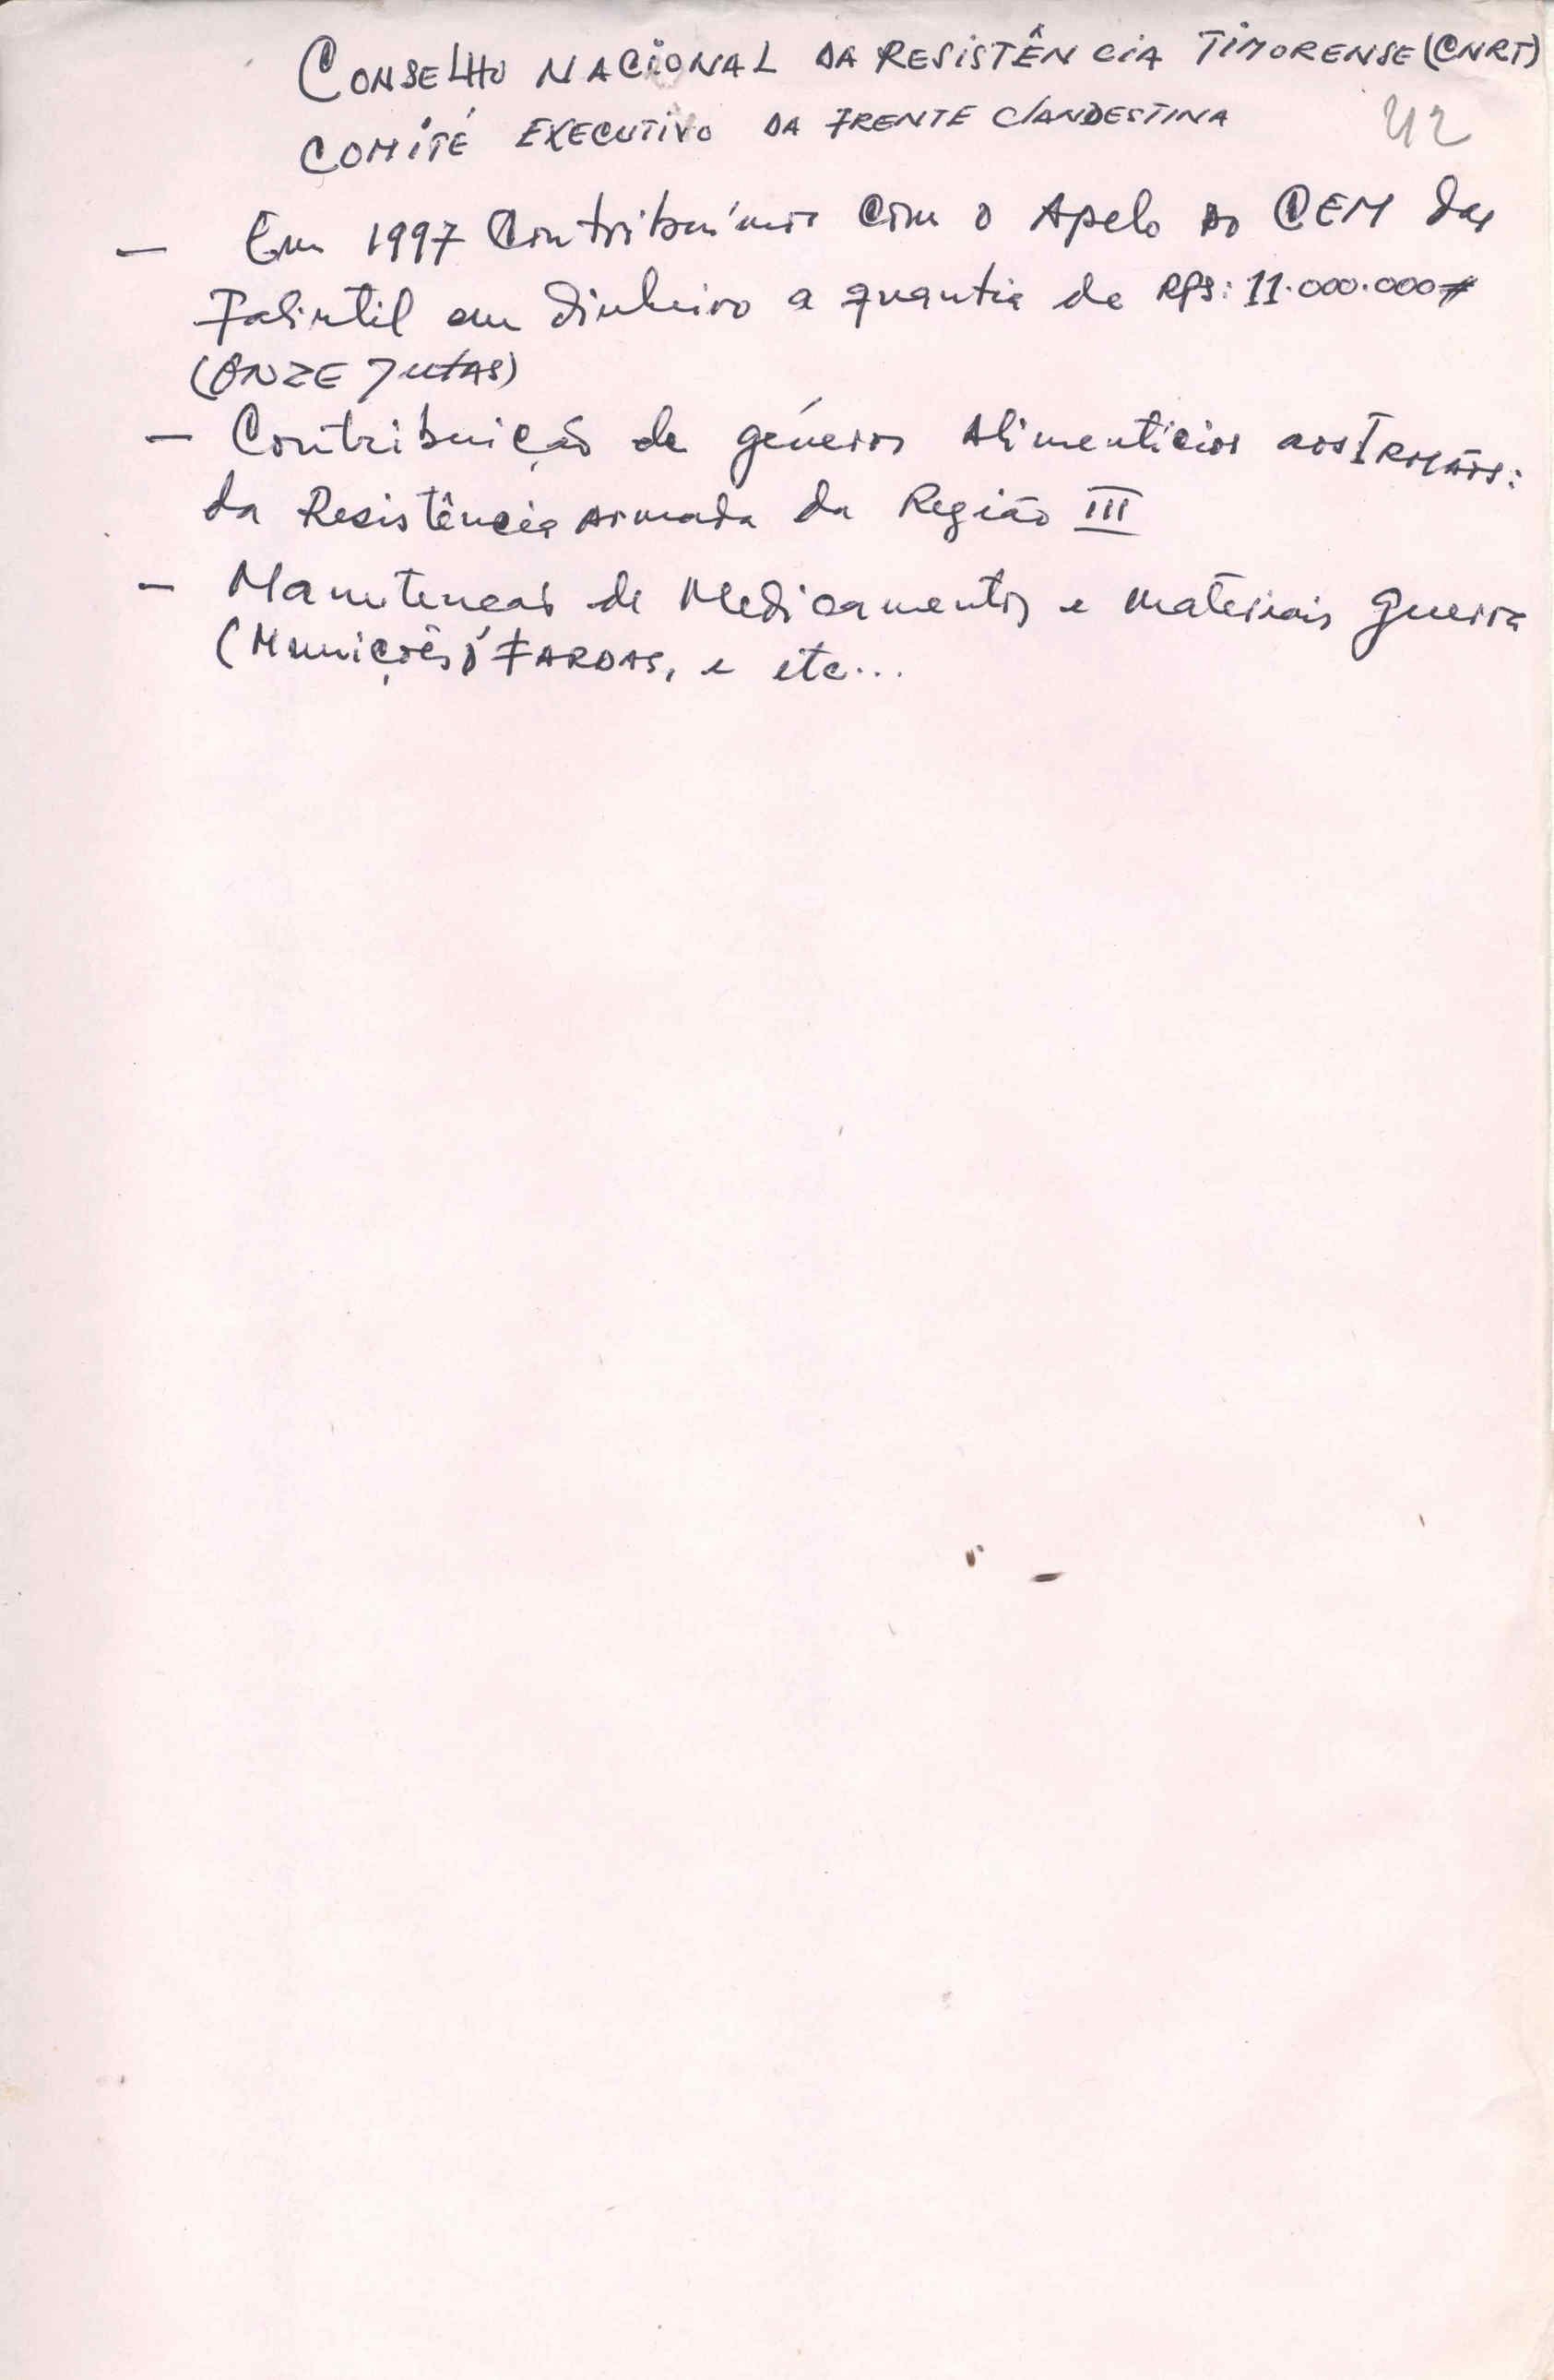 CONSELHO NACIONAL DA RESISTÊNCIA TIMORENSE (CNRT)
COMITÉ EXECUTIVO DA FRENTE CLANDESTINA
42
— Em 1997 Contribuímos com o Apelo do CEM das
Falintil em dinheiro a quantia de RPS: 11.000.000
(ONZE JUTAS)
— Contribuição de géneros Alimentícios aos IRMÃOS:
da Resistência Armada da Região III
— Manutenção de Medicamentos e materiais guerra
(Munições, FARDAS, e etc...